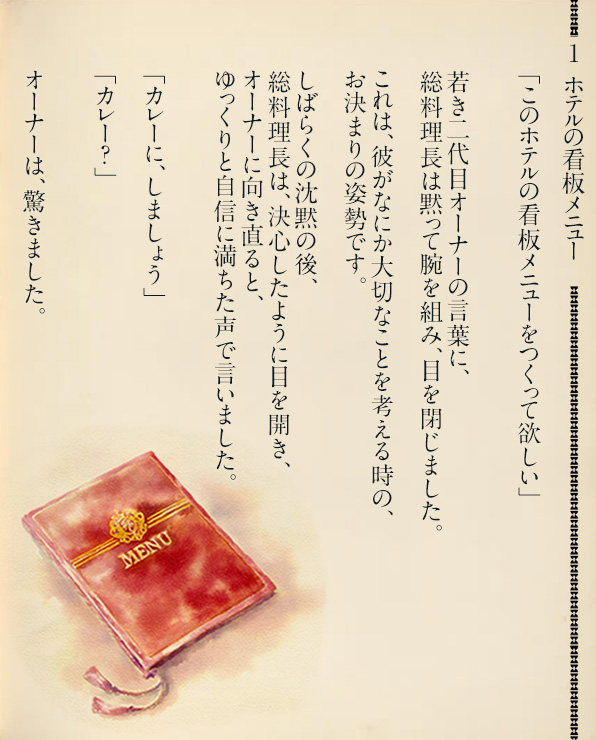 1 ホテルの看板メニュー
「このホテルの看板メニューをつくって欲しい」
若き二代目オーナーの言葉に、
総料理長は黙って腕を組み、目を閉じました。
これは、彼がなにか大切なことを考える時の、
お決まりの姿勢です。
しばらくの沈黙の後、
総料理長は、決心したように目を開き、
オーナーに向き直ると、
ゆっくりと自信に満ちた声で言いました。
「カレーに、しましょう」
「カレー？」
オーナーは、驚きました。
MENU